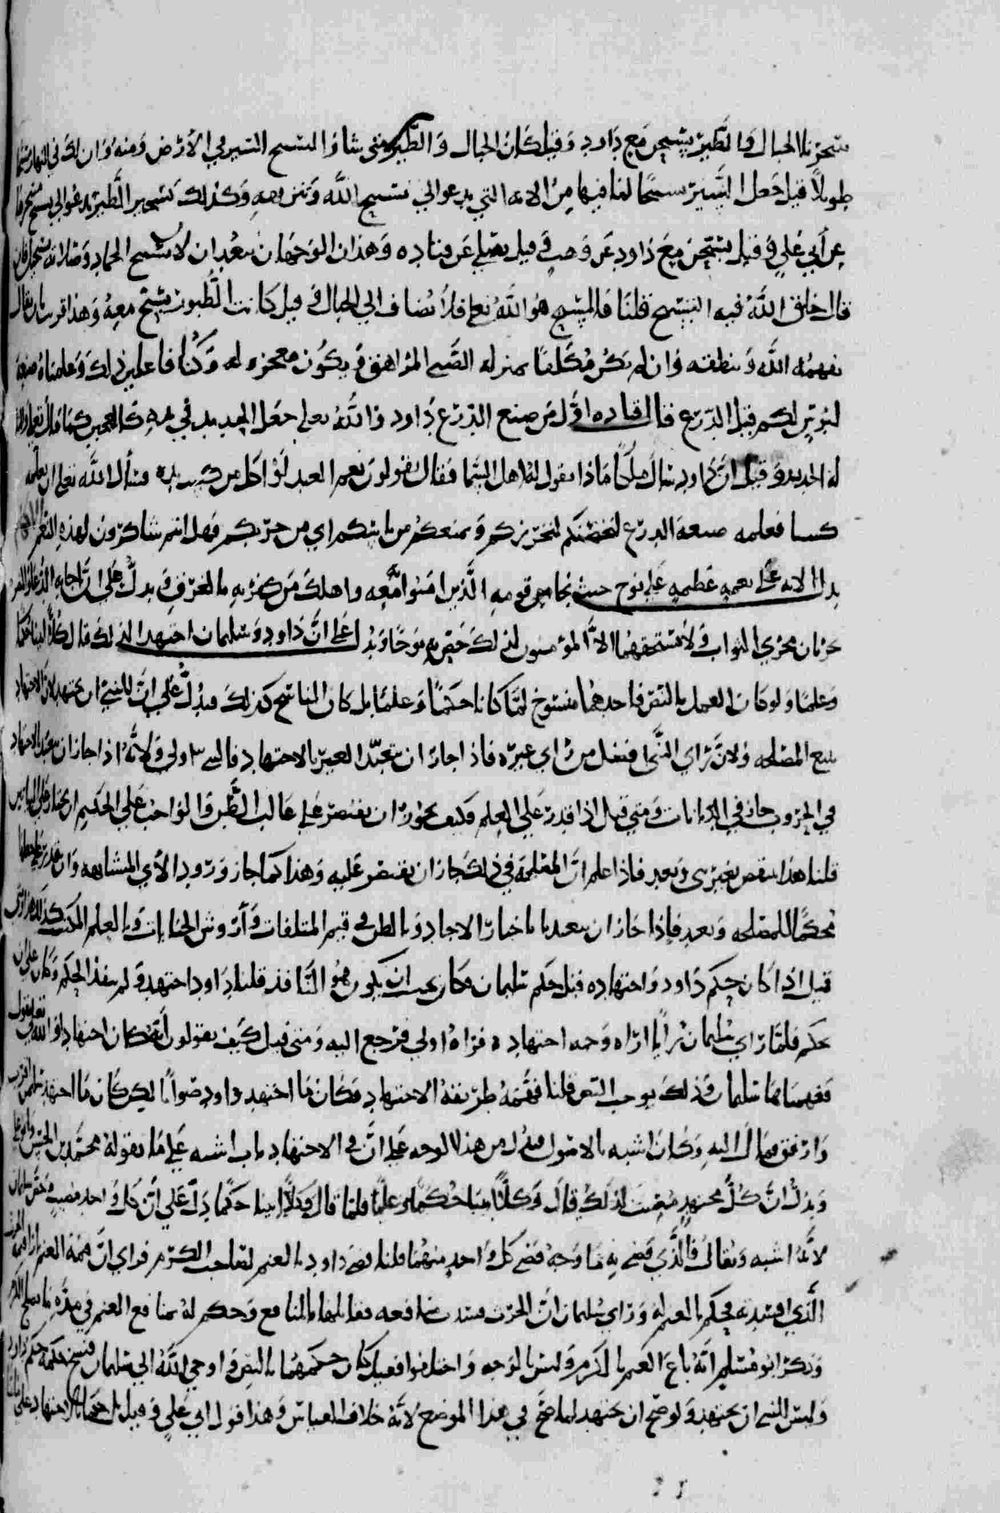 سخرنا الجبال والطير يسبحن مع داود وقيل كان الجبال والطير متى شاؤا السبح السير في الأرض ومنه وان لك في النهار سبحا
طويلا قيل جعل التسبيح لما فيها من الآية التي يدعوا الى تسبيح الله وتنزيهه وكذلك تسخير الطير يدعوا الى
عن أبي علي وقيل يسبحن مع داود عن وهب وقيل يصلي عن قتاده وهذان الوجهان يبعدان لان تسبيح الجماد وصلاته
قال خلق الله فيه التسبيح قلنا فالمسبح هو الله تعالى فلا يضاف الى الجبال وقيل كانت الطيور تسبح معه وهذا قرب بان يقال
يفهمه الله وينطقه وان لم يكن مكلفا بمنزله الصبي المراهق ويكون معجزه له وكنا فاعلين ذلك وعلمناه صنعة
لبوس لكم قيل الدرع قال قتاده اول من صنع الدرع داود والله تعالى جعل الحديد في يده كالعجين كما قال تعالى والنا
له الحديد وقيل ان داود سأل ملكا ماذا يقول اهل السما فقال يقولون نعم العبد لو اكل من كسب يده فسأل الله تعالى ان يعلمه
كسبا فعلمه صنعة الدرع لتحصنكم لتحرزكم وتمنعكم من بأسكم اي من حربكم فهل انتم شاكرون لهذه النعم
يدل الآية على نعمه عظيمه على نوح حيث نجاه من قومه الذين امنوا معه واهلك من كذبه بالغرق ويدل على ان اجابة الدعاء
حزبان مجرى الثواب ولا يستحقهما الا المؤمنون لذلك خص به نوحا ويدل على ان داود وسليمان اجتهدا لذلك قال كلا اتينا حكما
وعلما ولو كان العمل بالنص فاحدهما منسوخ لما كانا حكما وعلما بل كان الناسخ كذلك ويدل على ان للنبي ان يجتهد لان الاجتهاد
يتبع المصلحه ولان رأي النبي افضل من رأي غيره فاذا جاز ان يتعبد الغير بالاجتهاد فالنبي اولى ولانه اذا جاز ان يتعبد بالاجتهاد
في الحروب جاز في الديانات ومتى قيل اذا قدر على العلم فكيف يجوز ان يقتصر على غالب الظن والواجب على الحكيم
قلنا هذا ينقص بغير شي وبعد فاذا علم ان المصلحة في ذلك جاز ان يقتصر عليه وهذا كما جاز ورود الآي المتشابهه وان
محكما للمصلحه وبعد فاذا جاز ان يتعبد باخبار الاحاد وبالظن في قيم المتلفات وأروش الجنايات وبالعلم
قيل اذا كان حكم داود واجتهاده قبل حكم سليمان فكان يجب ان يكون هو النافذ قلنا داود اجتهد ولم ينفذ الحكم وكان على ان
يحكم فلما رأي سليمان رأيا اراه وجه اجتهاده فراه اولى فرجع اليه ومتى قيل كيف يقولون انه كان اجتهادا والله تعالى يقول
ففهمناها سليمان وذلك يوجب النص قلنا فهمه طريقة الاجتهاد فكان ما اجتهد داود صوابا لكن كان ما اجتهد سليمان اقرب
وارفق فمال اليه وكان اشبه بالاصول فيدل من هذا الوجه على ان في الاجتهاد باب اشبه على ما يقوله محمد بن الحسن
ويدل ان كل مجتهد مصيب لذلك قال وكلا اتينا حكما وعلما فلما قال وكلا اتينا حكما دل على ان كل واحد مصيب
لانه اشبه ويقال فالذي قضى به ما وجه قضى كل واحد منهما قلنا قضى داود بالغنم لصاحب الكرم فراي ان قيمة الغنم
الذي افسدته فحكم بالغنم له ورأي سليمان ان الحرث فسدت منافعه فقابلها بالمنافع وحكم له بمنافع الغنم في مدة
وذكر ابو مسلم انه باع الغنم بالكرم وليس بالوجه واختلفوا فقيل كان حكمهما بالنص واوحى الله الى سليمان فنسخ حكمه حكم داود
وليس للنبي ان يجتهد ولو صح ان يجتهد لما صح في هذا الموضع لانه خلاف القياس وهذا قول ابي علي وقيل بل حكما بالاجتهاد